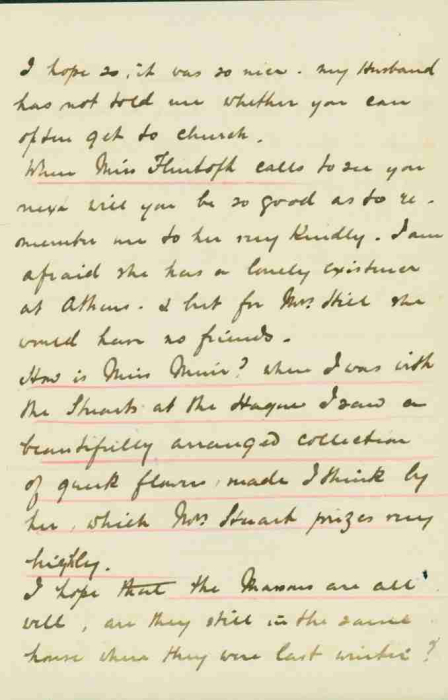 I hope so, it was so nice. my Husband
has not told me whether you can
often get to church.
When Miss calls to see you
next will you be so good as to re-
member me to her very kindly. I am
afraid she has a lonely existence
at Athens. & but for Mrs. Hill she
would have no friends.
How is Miss Muir? when I was with
the Stuarts at the Hague I saw a
beautifully arranged collection
of greek flowers, made I think by
her, which Mrs. Stuart prizes very
highly.
I hope that the Massons are all
well, are they still in the same
house where they were last winter?